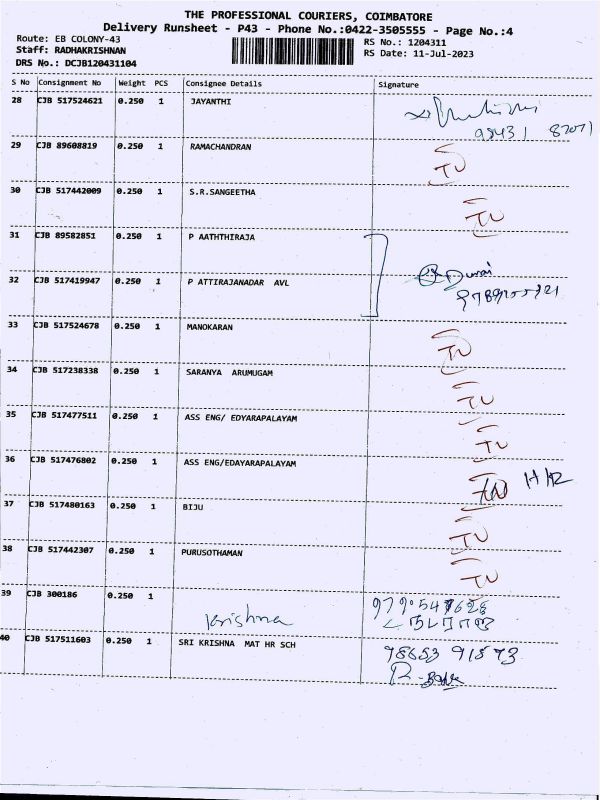 THE PROFESSIONAL COURIERS, COIMBATORE
Delivery Runsheet - P43 - Phone No.:0422-3505555 - Page No.:4
Route: EB COLONY-43
RS No.: 1204311
Staff: RADHAKRISHNAN
RS Date: 11-Jul-2023
DRS No.: DCJB120431104
S No Consignment No Weight PCS Consignee Details Signature
28 CJB 517524621 0.250 1 JAYANTHI
98431 82071
29 CJB 89608819 0.250 1 RAMACHANDRAN
30 CJB 517442009 0.250 1 S.R.SANGEETHA
31 CJB 89582851 0.250 1 P AATHTHIRAJA
32 CJB 517419947 0.250 1 P ATTIRAJANADAR AVL
Durai
33 CJB 517524678 0.250 1 MANOKARAN
34 CJB 517238338 0.250 1 SARANYA ARUMUGAM
35 CJB 517477511 0.250 1 ASS ENG/ EDYARAPALAYAM
36 CJB 517476802 0.250 1 ASS ENG/EDAYARAPALAYAM
37 CJB 517480163 0.250 1 BIJU
38 CJB 517442307 0.250 1 PURUSOTHAMAN
39 CJB 300186 0.250 1
Krishna
40 CJB 517511603 0.250 1 SRI KRISHNA MAT HR SCH